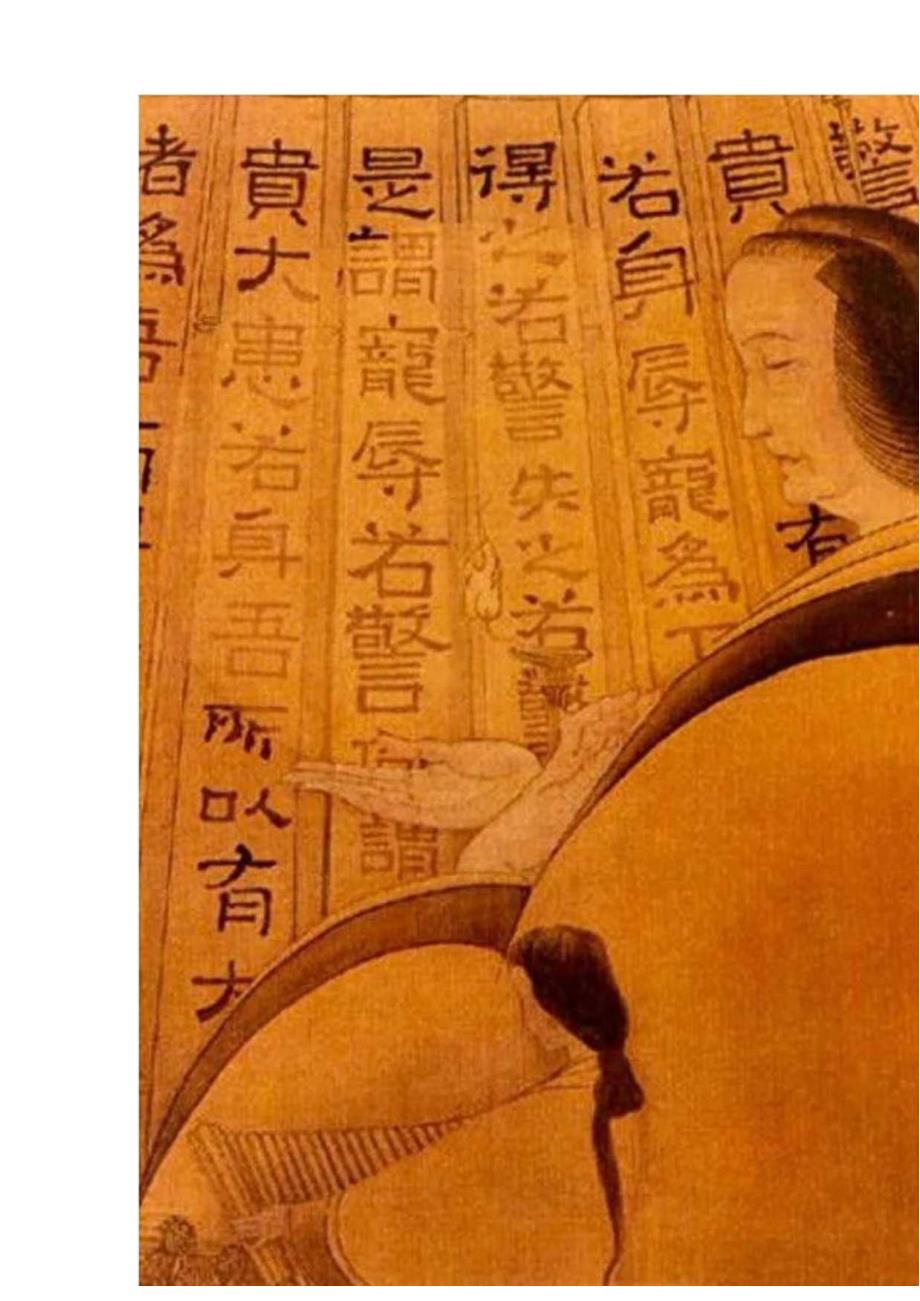 驚
貴 有
若身辱寵為下
得之若驚失之若驚
是謂寵辱若驚 謂
貴大患若身吾所以有大
者為吾